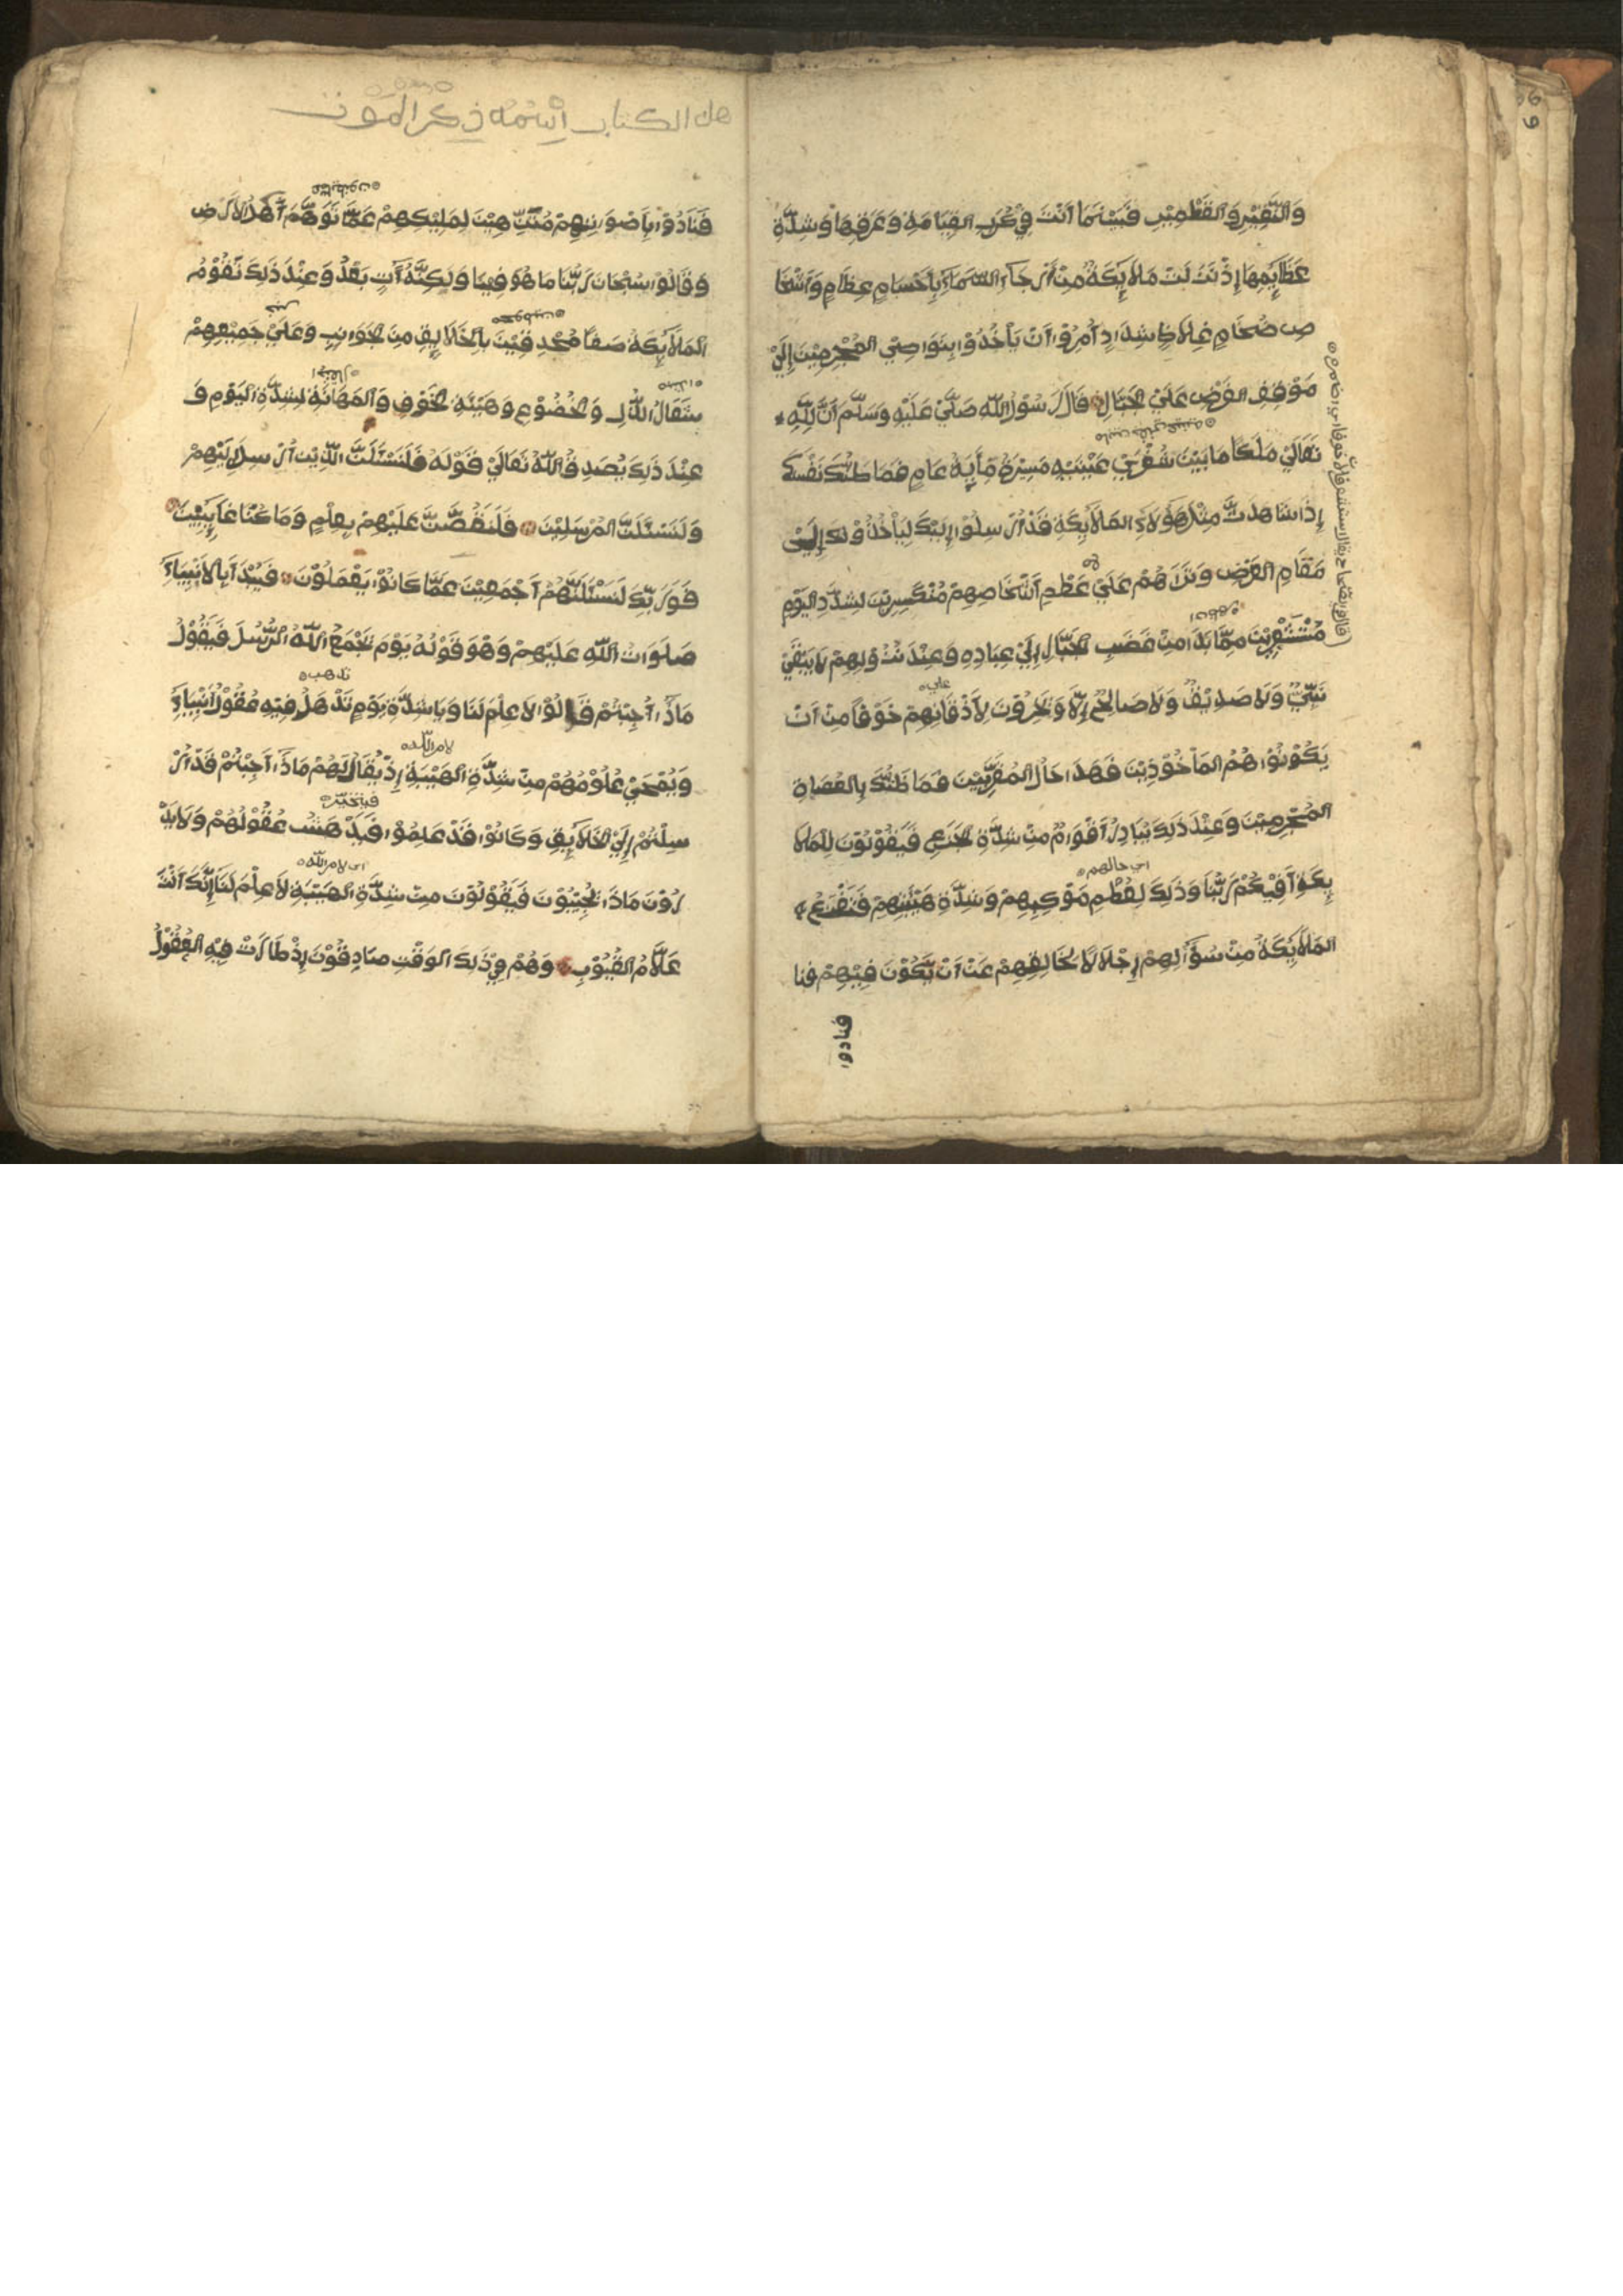 وَالنَّقِيْرِ وَالقِطْمِيْرِ فَبَيْنَمَا اَنْتَ فِيْ كُرَبِ القِيَامَةِ وَعَرَقِهَا وَشِدَّةِ
عَظَايِمِهَا إِذْ نَزَلَتْ مَلَايِكَةٌ مِنْ اَرْجَاءِ السَّمَاءِ بِاَجْسَامٍ عِظَامٍ وَاَشْخَا
صٍ ضِخَامٍ غِلَاظٍ شِدَادٍ اُمِرُوْا اَنْ يَاْخُذُوْا بِنَوَاصِي المُجْرِمِيْنَ إِلَيْ
مَوْقِفِ العَرْضِ عَلَيْ الجَبَّارِ قَالَ رَسُوْلُ اللّٰهِ صَلَّيْ عَلَيْهِ وَسَلَّمَ اَنَّ لِلّٰهِ
تَعَالَيْ مَلَكًا مَا بَيْنَ شُفْرَيْ عَيْنَيْهِ مَسِيْرَةُ مِأَيَةِ عَامٍ فَمَا ظَنُّكَ بِنَفْسِكَ
إِذَا شَاهَدْتَ مِثْلَ هَؤُلَاءِ المَلَايِكَةِ قَدْ اُرْسِلُوْا إِلَيْكَ لِيَأْخُذُوْكَ إِلَيْ
مَقَامِ العَرْضِ وَتَرَاهُمْ عَلَيْ عِظَمِ اَشْخَاصِهِمْ مُنْكَسِرِيْنَ لِشِدَّةِ اليَوْمِ
مُسْتَشْعِرِيْنَ مِمَّا بَدَا مِنْ غَضَبِ الجَبَّارِ إِلَيْ عِبَادِهِ وَعِنْدَ نُزُوْلِهِمْ لَا يَبْقَيْ
نَبِيٌّ وَلَا صَدِيْقٌ وَلَا صَالِحٌ إِلَّا وَيَخِرُّوْنَ لِاَذْقَانِهِمْ خَوْفًا مِنْ اَنْ
يَكُوْنُوْا هُمُ المَأْخُوْذِيْنَ فَهَذَا حَالُ المُقَرَّبِيْنَ فَمَا ظَنُّكَ بِالعُصَاةِ
المُجْرِمِيْنَ وَعِنْدَ ذَلِكَ يُبَادِرُ اَقْوَامٌ مِنْ شِدَّةِ الجَزَعِ فَيَقُوْلُوْنَ لِلْمَلَا
يِكَةِ اَفِيْكُمْ رَبُّنَا وَذَلِكَ لِعُظْمِ مَوْكِبِهِمْ وَشِدَّةِ هَيْبَتِهِمْ فَتَفْزَعُ
المَلَايِكَةُ مِنْ سُؤَالِهِمْ إِجْلَالًا لِخَالِقِهِمْ عَنْ اَنْ يَّكُوْنَ فِيْهِمْ فنا
فنادوا
هذا الكتاب اِسْمُهُ ذِكْرُ المَوْت
فَنَادَوْا بِاَصْوَاتِهِمْ مُنَزِّهِيْنَ لِمَلِيْكِهِمْ عَمَّا تَوَهَّمَ اَهْلُ الاَرْضِ
وَقَالُوْا سُبْحَانَ رَبُّنَا مَا هُوَ فِيْنَا وَلَكِنَّهُ اٰتٍ بَعْدُ وَعِنْدَ ذَلِكَ تَقُوْمُ
المَلَايِكَةُ صَفًّا مُحْدِقِيْنَ بِالخَلَايِقِ مِنَ الجَوَانِبِ وَعَلَيْ جَمِيْعِهِمْ
شِعَارُ الذُّلِّ وَالخُضُوْعِ وَهَيْبَةِ الخَوْفِ وَالمَهَابَةِ لِشِدَّةِ اليَوْمِ وَ
عِنْدَ ذَلِكَ يُصَدِّقُ اللّٰهُ تَعَالَيْ قَوْلَهُ فَلَنَسْئَلَنَّ الَّذِيْنَ اُرْسِلَ إِلَيْهِمْ
وَلَنَسْئَلَنَّ المُرْسَلِيْنَ فَلَنَقُصَّنَّ عَلَيْهِمْ بِعِلْمٍ وَمَا كُنَّا غَايِبِيْنَ
فَوَرَبِّكَ لَنَسْئَلَنَّهُمْ اَجْمَعِيْنَ عَمَّا كَانُوْا يَعْمَلُوْنَ فَيُبْدَاُ بِالاَنْبِيَاءِ
صَلَوَاتُ اللّٰهِ عَلَيْهِمْ وَهُوَ قَوْلُهُ يَوْمَ يَجْمَعُ اللّٰهُ الرُّسُلَ فَيَقُوْلُ
تذهب
مَاذَا اُجِبْتُمْ قَالُوْا لَا عِلْمَ لَنَا وَيَا شِدَّةَ يَوْمٍ تَذْهَلُ فِيْهِ عُقُوْلُ اَنْبِيَاءِ
لامر اللّٰه
وَيُمْحَيْ عُلُوْمُهُمْ مِنْ شِدَّةِ الهَيْبَةِ إِذْ يُقَالُ لَهُمْ مَاذَا اُجِبْتُمْ قَدْ اُرْ
فيتحير
سِلْتُمْ إِلَيْ الخَلَايِقِ وَكَانُوْا قَدْ عَلِمُوْا فَيَدْهَشُ عُقُوْلُهُمْ وَلَا يَدْ
اي لامر اللّٰه
رُوْنَ مَاذَا يُجِيْبُوْنَ فَيَقُوْلُوْنَ مِنْ شِدَّةِ الهَيْبَةِ لَا عِلْمَ لَنَا إِنَّكَ اَنْتَ
عَلَّامُ الغُيُوْبِ وَهُمْ فِيْ ذَلِكَ الوَقْتِ صَادِقُوْنَ إِذْ طَارَتْ فِيْهِ العُقُوْلُ